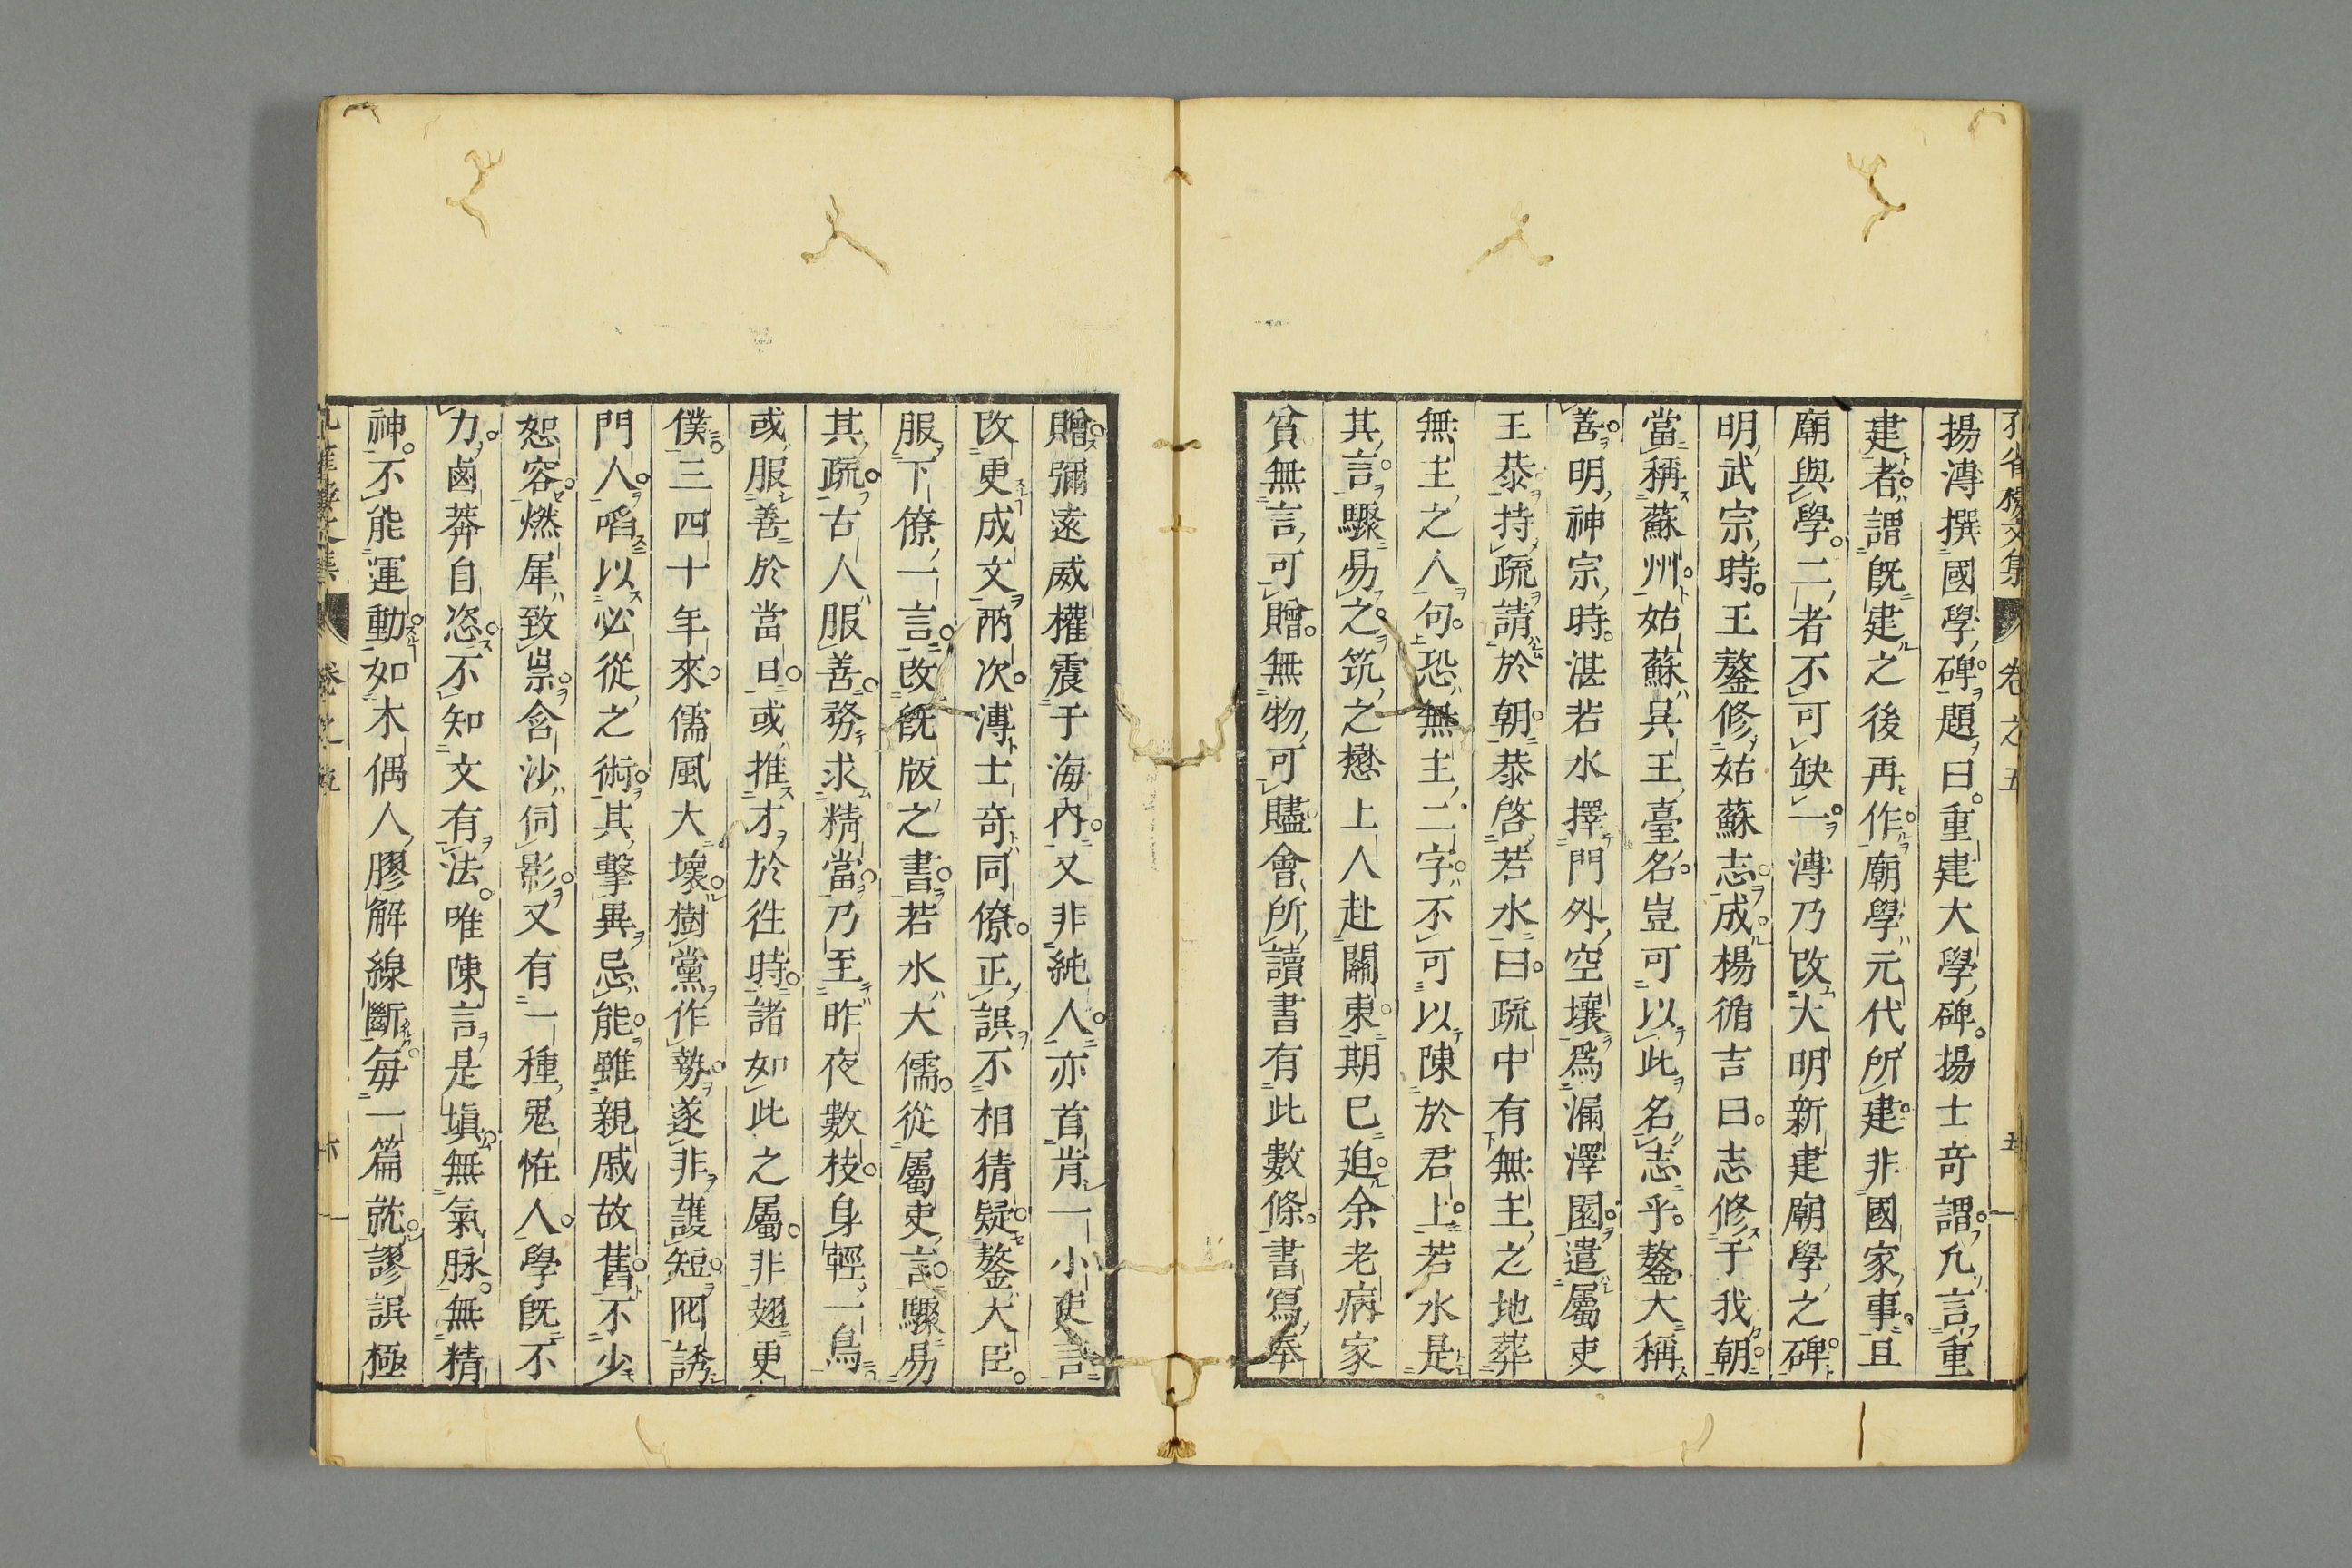 卷之五
五
揚溥撰國學碑題曰重建大學碑揚士奇謂凡言重
建者謂既建之後再作廟學元代所建非國家事且
廟與學二者不可缺一溥乃改大明新建廟學之碑
明武宗時王鏊修姑蘇志成楊循吉曰志修于我朝
當稱蘇州姑蘇吳王臺名豈可以此名志乎鏊大稱
善明神宗時湛若水擇門外空壤爲漏澤園遣屬吏
王恭持疏請於朝恭啓若水曰疏中有無主之地葬
無主之人句恐無主二字不可以陳於君上若水是
其言驟易之筑之懋上人赴關東期已迫余老病家
貧無言可贈無物可贐會所讀書有此數條書寫奉
贈彌遠威權震于海內又非純人亦首肯一小吏言
改更成文兩次溥士奇同僚正誤不相猜疑鏊大臣
服下僚一言改既版之書若水大儒從屬吏言驟易
其疏古人服善務求精當乃至昨夜數枝身輕一鳥
或服善於當日或推才於徃時諸如此之屬非翅更
僕三四十年來儒風大壞樹黨作勢遂非護短囮誘
門人啗以必從之術其擊異忌能雖親戚故舊不少
恕容燃犀致祟含沙伺影又有一種鬼恠人學既不
力鹵莽自恣不知文有法唯陳言是塡無氣脉無精
神不能運動如木偶人膠解線斷每一篇就謬誤極